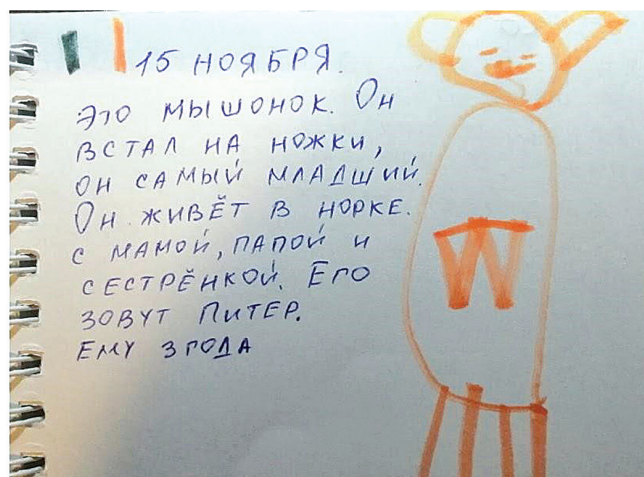 15 НОЯБРЯ.
ЭТО МЫШОНОК. ОН
ВСТАЛ НА НОЖКИ,
ОН САМЫЙ МЛАДШИЙ.
ОН ЖИВЁТ В НОРКЕ.
С МАМОЙ, ПАПОЙ И
СЕСТРЁНКОЙ. ЕГО
ЗОВУТ ПИТЕР.
ЕМУ 3 ГОДА